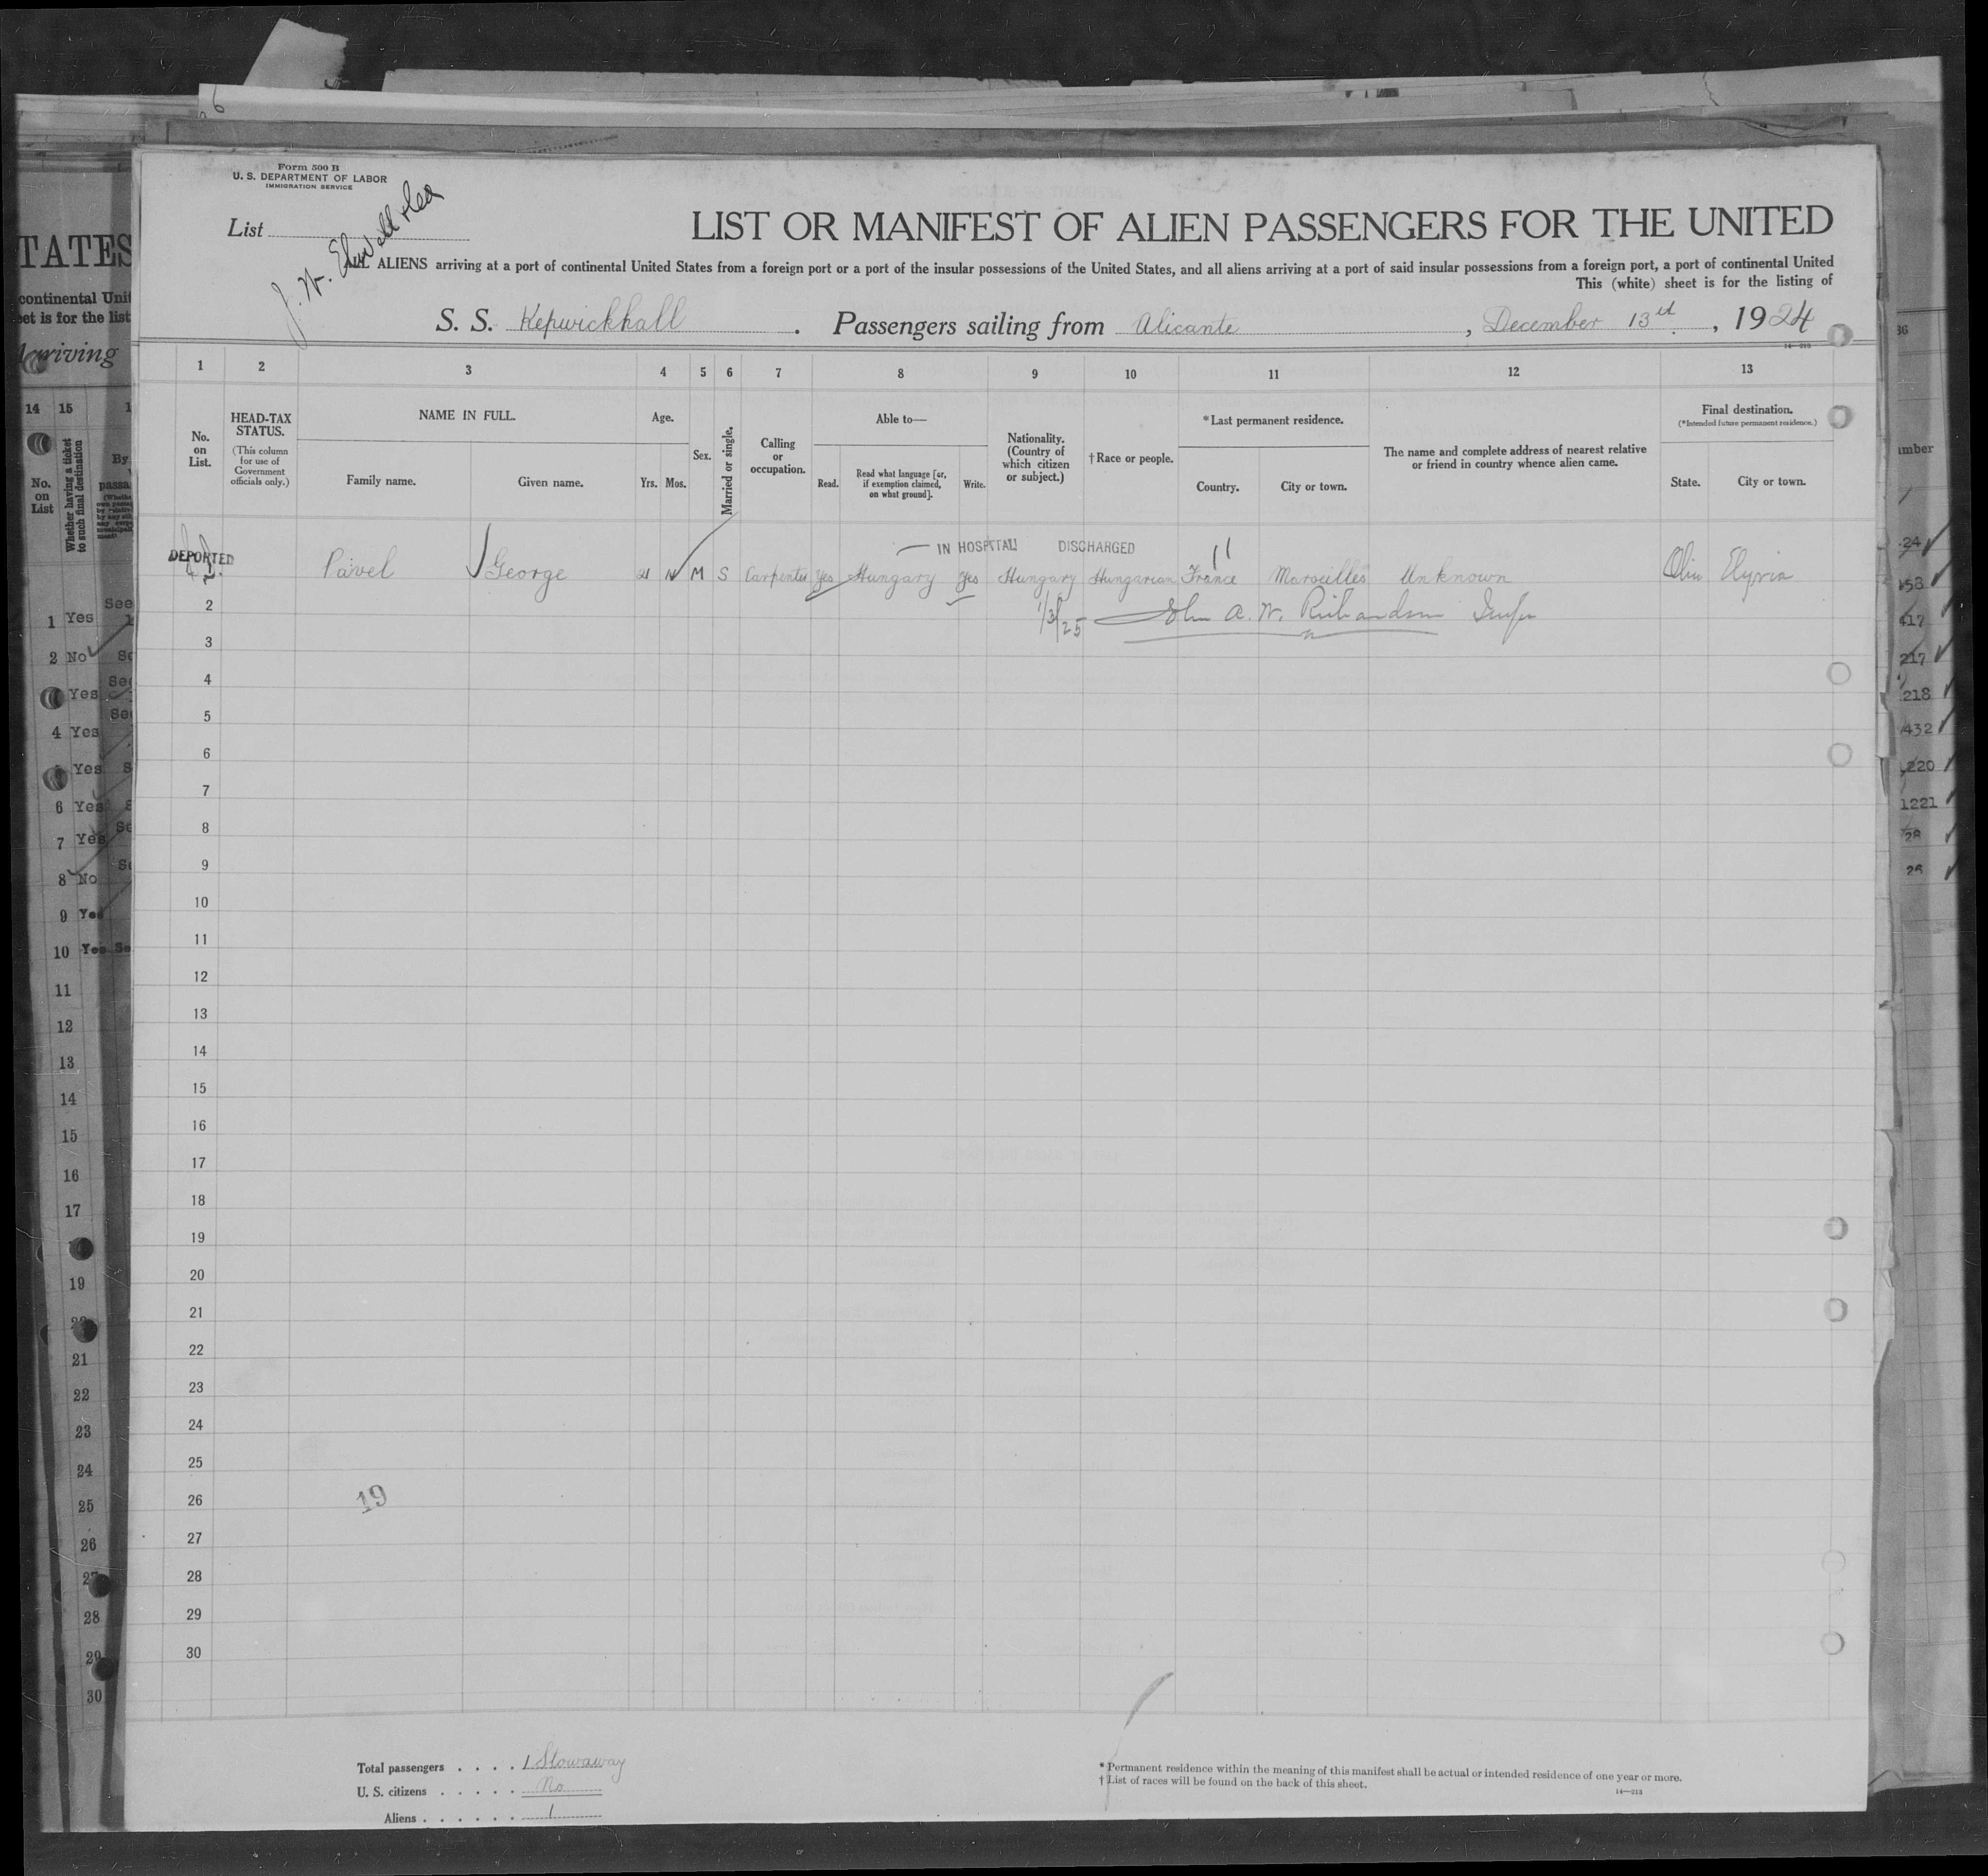 Form 500 B
U. S. DEPARTMENT OF LABOR
IMMIGRATION SERVICE
List
LIST OR MANIFEST OF ALIEN PASSENGERS FOR THE UNITED
ALL ALIENS arriving at a port of continental United States from a foreign port or a port of the insular possessions of the United States, and all aliens arriving at a port of said insular possessions from a foreign port, a port of continental United
This (white) sheet is for the listing of
S. S. Kepwickhall. Passengers sailing from Alicante, December 13th, 1924
1 2 3 4 5 6 7 8 9 10 11 12 13
No. on List.
HEAD-TAX STATUS.
(This column for use of Government officials only.)
NAME IN FULL.
Family name. Given name.
Age.
Yrs. Mos.
Sex.
Married or single.
Calling or occupation.
Able to—
Read. Read what language [or, if exemption claimed, on what ground]. Write.
Nationality. (Country of which citizen or subject.)
†Race or people.
*Last permanent residence.
Country. City or town.
The name and complete address of nearest relative or friend in country whence alien came.
Final destination.
(*Intended future permanent residence.)
State. City or town.
DEPORTED
IN HOSPITAL DISCHARGED
Pavel George 21 M S Carpenter Yes Hungary Yes Hungary Hungarian France Marseilles Unknown Ohio Elyria
2 1/3/25 John A. W. Richardson
3
4
5
6
7
8
9
10
11
12
13
14
15
16
17
18
19
20
21
22
23
24
25
26
19
27
28
29
30
Total passengers . . . . 1 Stowaway
U. S. citizens . . . . . No
Aliens . . . . . . 1
* Permanent residence within the meaning of this manifest shall be actual or intended residence of one year or more.
† List of races will be found on the back of this sheet.
14—213